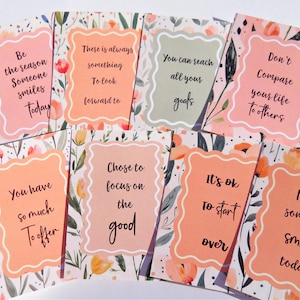 Be
the season
Someone
smiles
Today
There is always
something
To look
forward to
You can reach
all your
goals
Don't
Compare
your life
To others
You have
so much
To offer
Chose to
focus on
the
good
It's ok
To start
over
so
Sm
toda